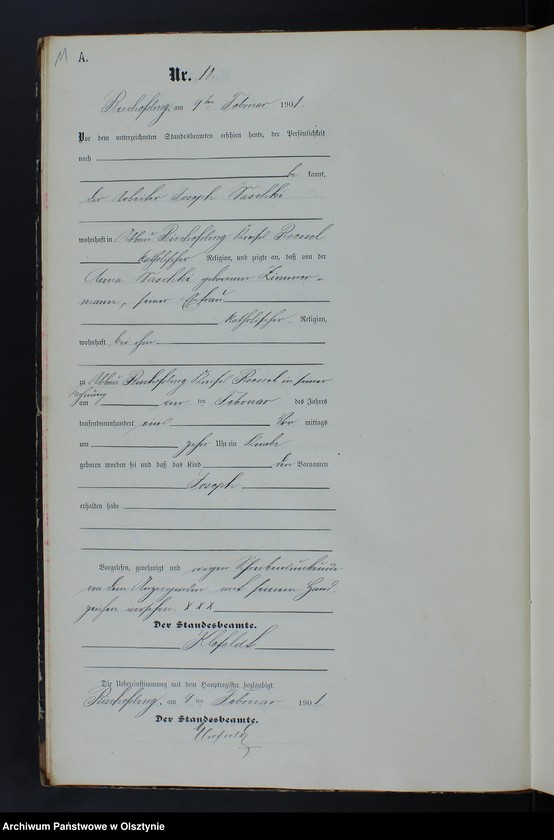 11 A.
Nr. 11.
am 9 ten Februar 1901.
Vor dem unterzeichneten Standesbeamten erschien heute, der Persönlichkeit
nach
be kannt,
der Arbeiter Joseph
wohnhaft in Abbau Kreis Roessel
katholischer Religion, und zeigte an, daß von der
Anna geborenen Zimmer-
mann, seiner Ehefrau
katholischer Religion,
wohnhaft bei ihm
zu Abbau Kreis Roessel in seiner
Wohnung
am ten Februar des Jahrs
tausendneunhundert eins Vor mittags
um zehn Uhr ein Knabe
geboren worden sei und daß das Kind den Vornamen
Joseph
erhalten habe
Vorgelesen, genehmigt und wegen Schreibensunkunde
von dem Anzeigenden mit seinem Hand
zeichen versehen. X X X
Der Standesbeamte.
Die Uebereinstimmung mit dem Hauptregister beglaubigt.
am 9 ten Februar 1901.
Der Standesbeamte.
Archiwum Państwowe w Olsztynie